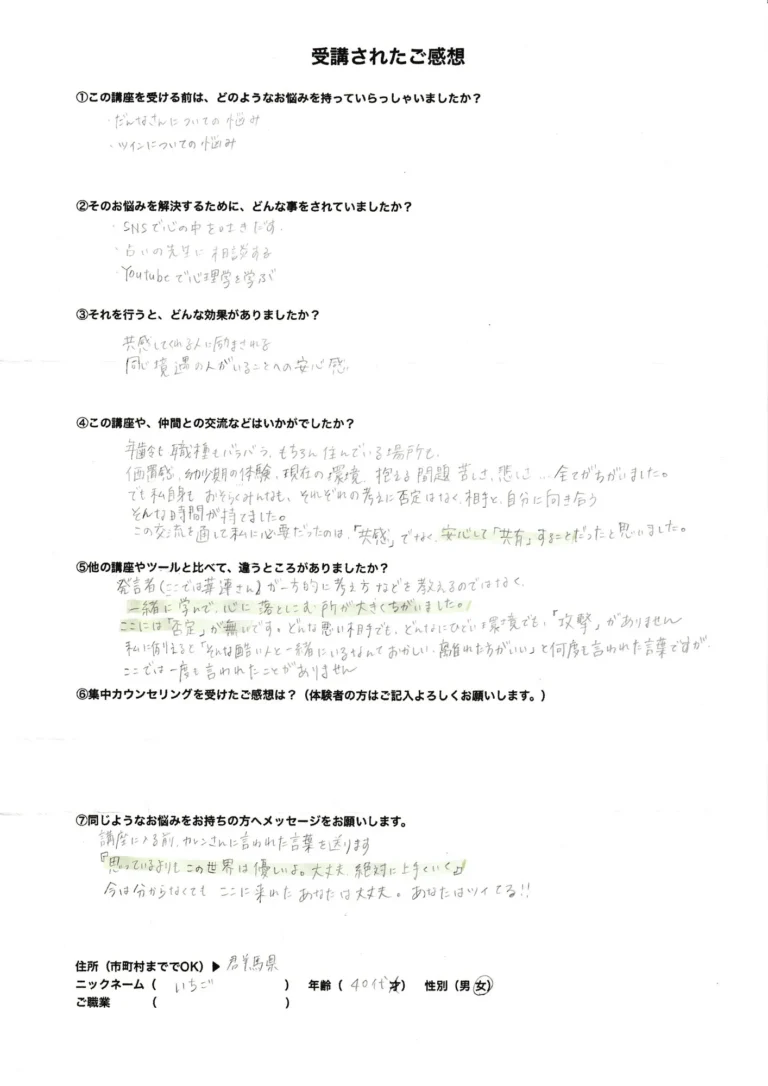 受講されたご感想
①この講座を受ける前は、どのようなお悩みを持っていらっしゃいましたか？
・だんなさんについての悩み
・ツインについての悩み
②そのお悩みを解決するために、どんな事をされていましたか？
・SNSで心の中を吐きだす.
・占いの先生に相談する
・Youtubeで心理学を学ぶ
③それを行うと、どんな効果がありましたか？
共感してくれる人に励まされる
同じ境遇の人がいることへの安心感
④この講座や、仲間との交流などはいかがでしたか？
年齢も職種もバラバラ、もちろん住んでいる場所も、
価値感、幼少期の体験、現在の環境、抱える問題 苦しさ、悲しさ…全てがちがいました。
でも私自身も おそらくみんなも、それぞれの考えに否定はなく、相手と、自分に向き合う
そんな時間が持てました。
この交流を通して私に必要だったのは、「共感」でなく、安心して「共有」することだったと思いました。
⑤他の講座やツールと比べて、違うところがありましたか？
発言者(ここでは華連さん)が一方的に考え方などを教えるのではなく、
一緒に学んで、心に落としこむ所が大きくちがいました。
ここには「否定」が無いです。どんな悪い相手でも、どんなにひどい環境でも、「攻撃」がありません
私に例えると「そんな酷い人と一緒にいるなんておかしい、離れた方がいい」と何度も言われた言葉ですが、
ここでは一度も言われたことがありません
⑥集中カウンセリングを受けたご感想は？（体験者の方はご記入よろしくお願いします。）
⑦同じようなお悩みをお持ちの方へメッセージをお願いします。
講座に入る前、カレンさんに言われた言葉を送ります
『思っているよりもこの世界は優しいよ。大丈夫、絶対に上手くいく』
今は分からなくても ここに来れた あなたは大丈夫。あなたはツイてる!!
住所（市町村まででOK）▶ 群馬県
ニックネーム（ いちご ） 年齢（ 40代才） 性別（男 女）
ご職業 （ ）